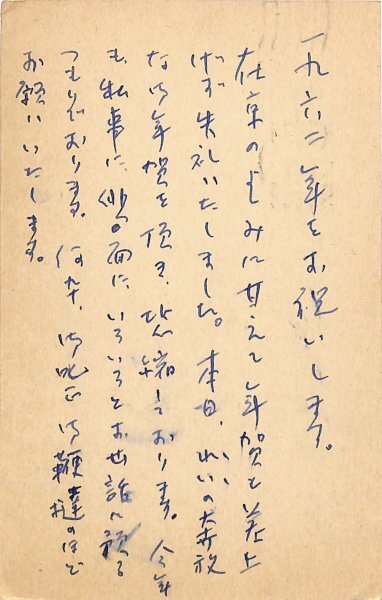 一九六二年をお祝いします。
在京のよしみに甘えて年賀を差上
げず失礼いたしました。本日、れいの奔放
な御年賀を頂き、恐縮しております。今年
も、私事に、他の面に、いろいろとお世話に預る
つもりでおります。何卒、御叱正御鞭撻のほど
お願いいたします。